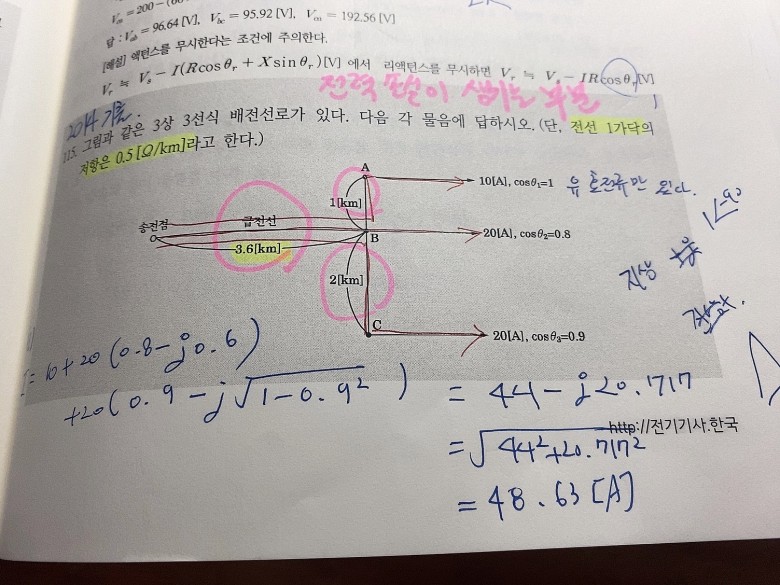 V_a = 200 − (60
답 : V_ab = 96.64 [V], V_bc = 95.92 [V], V_ca = 192.56 [V]
[해설] 액턴스를 무시한다는 조건에 주의한다.
V_r ≒ V_s − I(R cos θ_r + X sin θ_r)[V] 에서 리액턴스를 무시하면 V_r ≒ V_s − IR cos θ_r [V]
전력 손실이 생기는 부분
2014 기출.
115. 그림과 같은 3상 3선식 배전선로가 있다. 다음 각 물음에 답하시오. (단, 전선 1가닥의
저항은 0.5[Ω/km]라고 한다.)
A
1[km]
10[A], cosθ₁=1
유효전류만 있다.
송전점
급전선
B
20[A], cosθ₂=0.8
3.6[km]
지상
2[km]
C
20[A], cosθ₃=0.9
I = 10+20 (0.8−j0.6)
+20(0.9−j√(1−0.9²))
= 44−j20.717
http://전기기사.한국
=√(44²+20.717²)
= 48.63 [A]